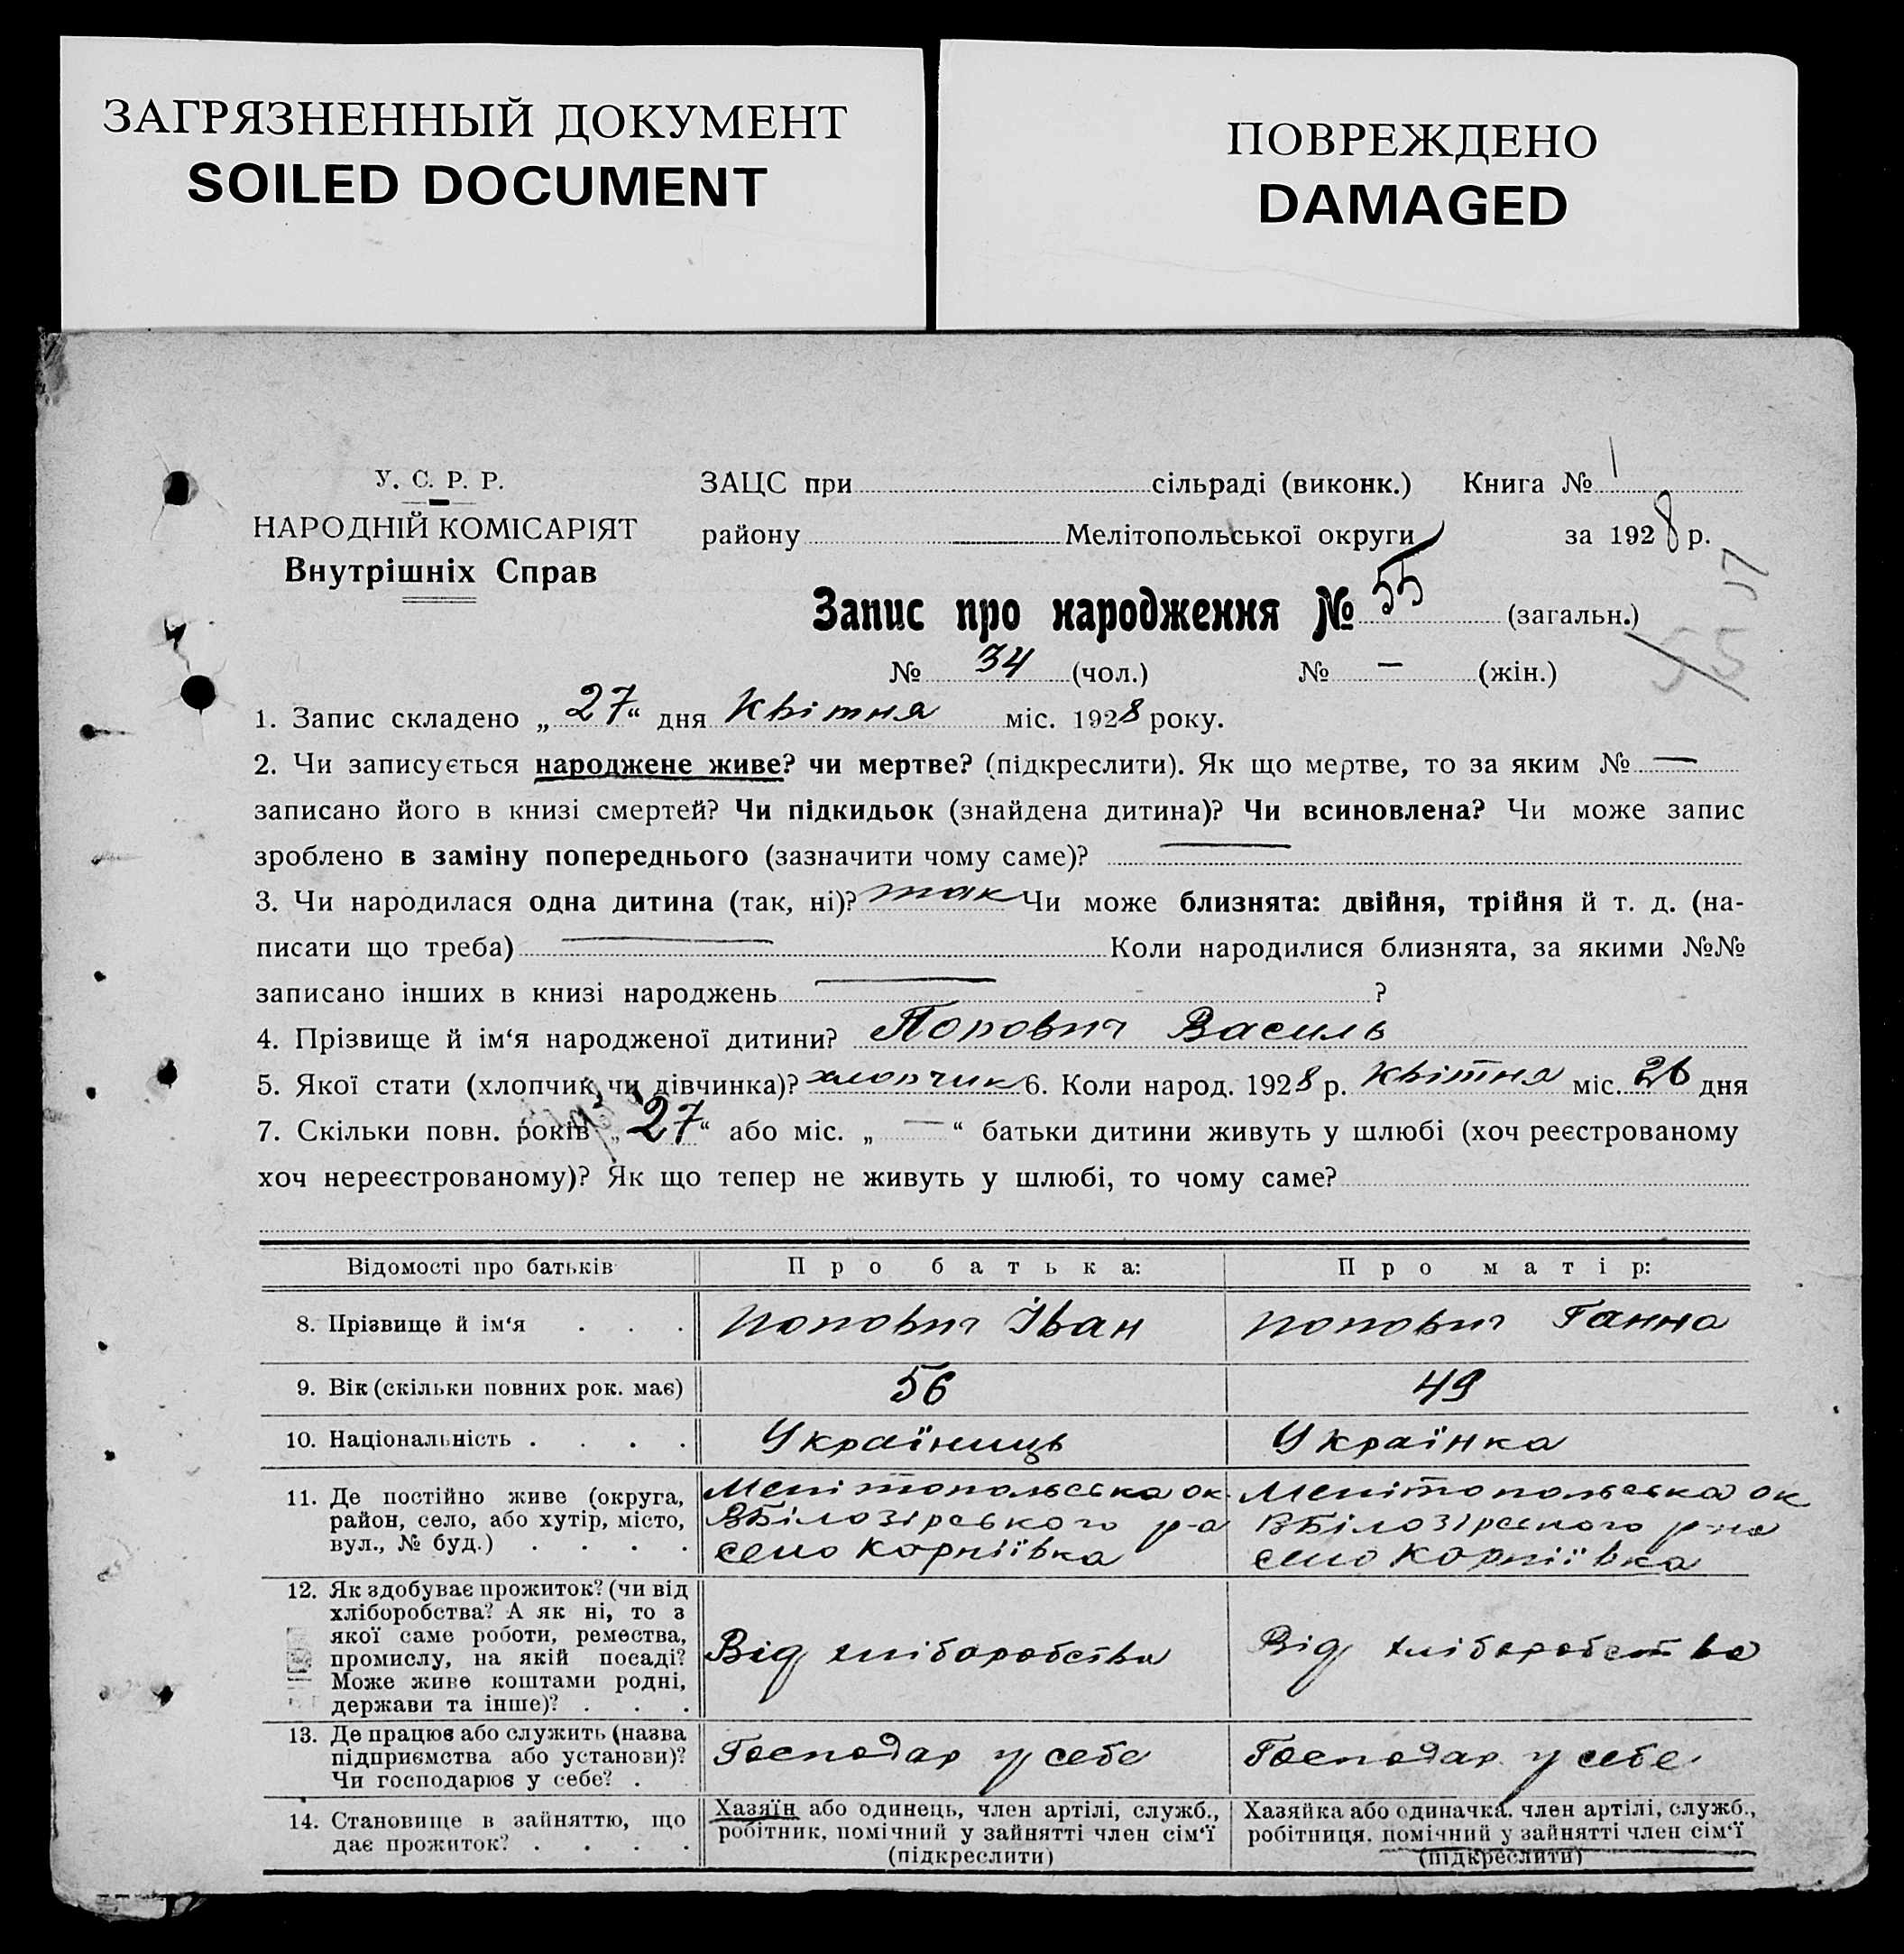 ЗАГРЯЗНЕННЫЙ ДОКУМЕНТ
SOILED DOCUMENT
ПОВРЕЖДЕНО
DAMAGED
У. С. Р. Р.
НАРОДНІЙ КОМІСАРІЯТ
Внутрішніх Справ
ЗАЦС при сільраді (виконк.) Книга № 1
району Мелітопольської округи за 1928 р.
Запис про народження № 55 (загальн.)
55 17
№ 34 (чол.) № — (жін.)
1. Запис складено „27“ дня Квітня міс. 1928 року.
2. Чи записується народжене живе? чи мертве? (підкреслити). Як що мертве, то за яким № —
записано його в книзі смертей? Чи підкидьок (знайдена дитина)? Чи всиновлена? Чи може запис
зроблено в заміну попереднього (зазначити чому саме)? —
3. Чи народилася одна дитина (так, ні)? так Чи може близнята: двійня, трійня й т. д. (на-
писати що треба) — Коли народилися близнята, за якими №№
записано інших в книзі народжень — ?
4. Прізвище й ім‘я народженої дитини? Попович Василь
5. Якої стати (хлопчик чи дівчинка)? хлопчик 6. Коли народ. 1928 р. Квітня міс. 26 дня
7. Скільки повн. років „27“ або міс. „—“ батьки дитини живуть у шлюбі (хоч реєстрованому
хоч нереєстрованому)? Як що тепер не живуть у шлюбі, то чому саме?
Відомості про батьків Про батька: Про матір:
8. Прізвище й ім‘я . . . Попович Іван Попович Ганна
9. Вік (скільки повних рок. має) 56 49
10. Національність . . . . Україниць Українка
11. Де постійно живе (округа, район, село, або хутір, місто, вул., № буд.) . . . .
Мелітопольська ок.
ВБілозірського р-а
село Корніївка
Мелітопольська ок
ВБілозірського р-на
село Корніївка
12. Як здобуває прожиток? (чи від
хліборобства? А як ні, то з
якої саме роботи, ремества,
промислу, на якій посаді?
Може живе коштами родні,
держави та інше)? . . .
Від хліборобства Від хліборобства
13. Де працює або служить (назва
підприємства або установи)?
Чи господарює у себе? .
Господар у себе Господар у себе
14. Становище в зайняттю, що
дає прожиток? . . . .
Хазяїн або одинець, член артілі, служб.,
робітник, помічний у зайнятті член сім‘ї
(підкреслити)
Хазяйка або одиначка, член артілі, служб.,
робітниця, помічний у зайнятті член сім‘ї
(підкреслити)